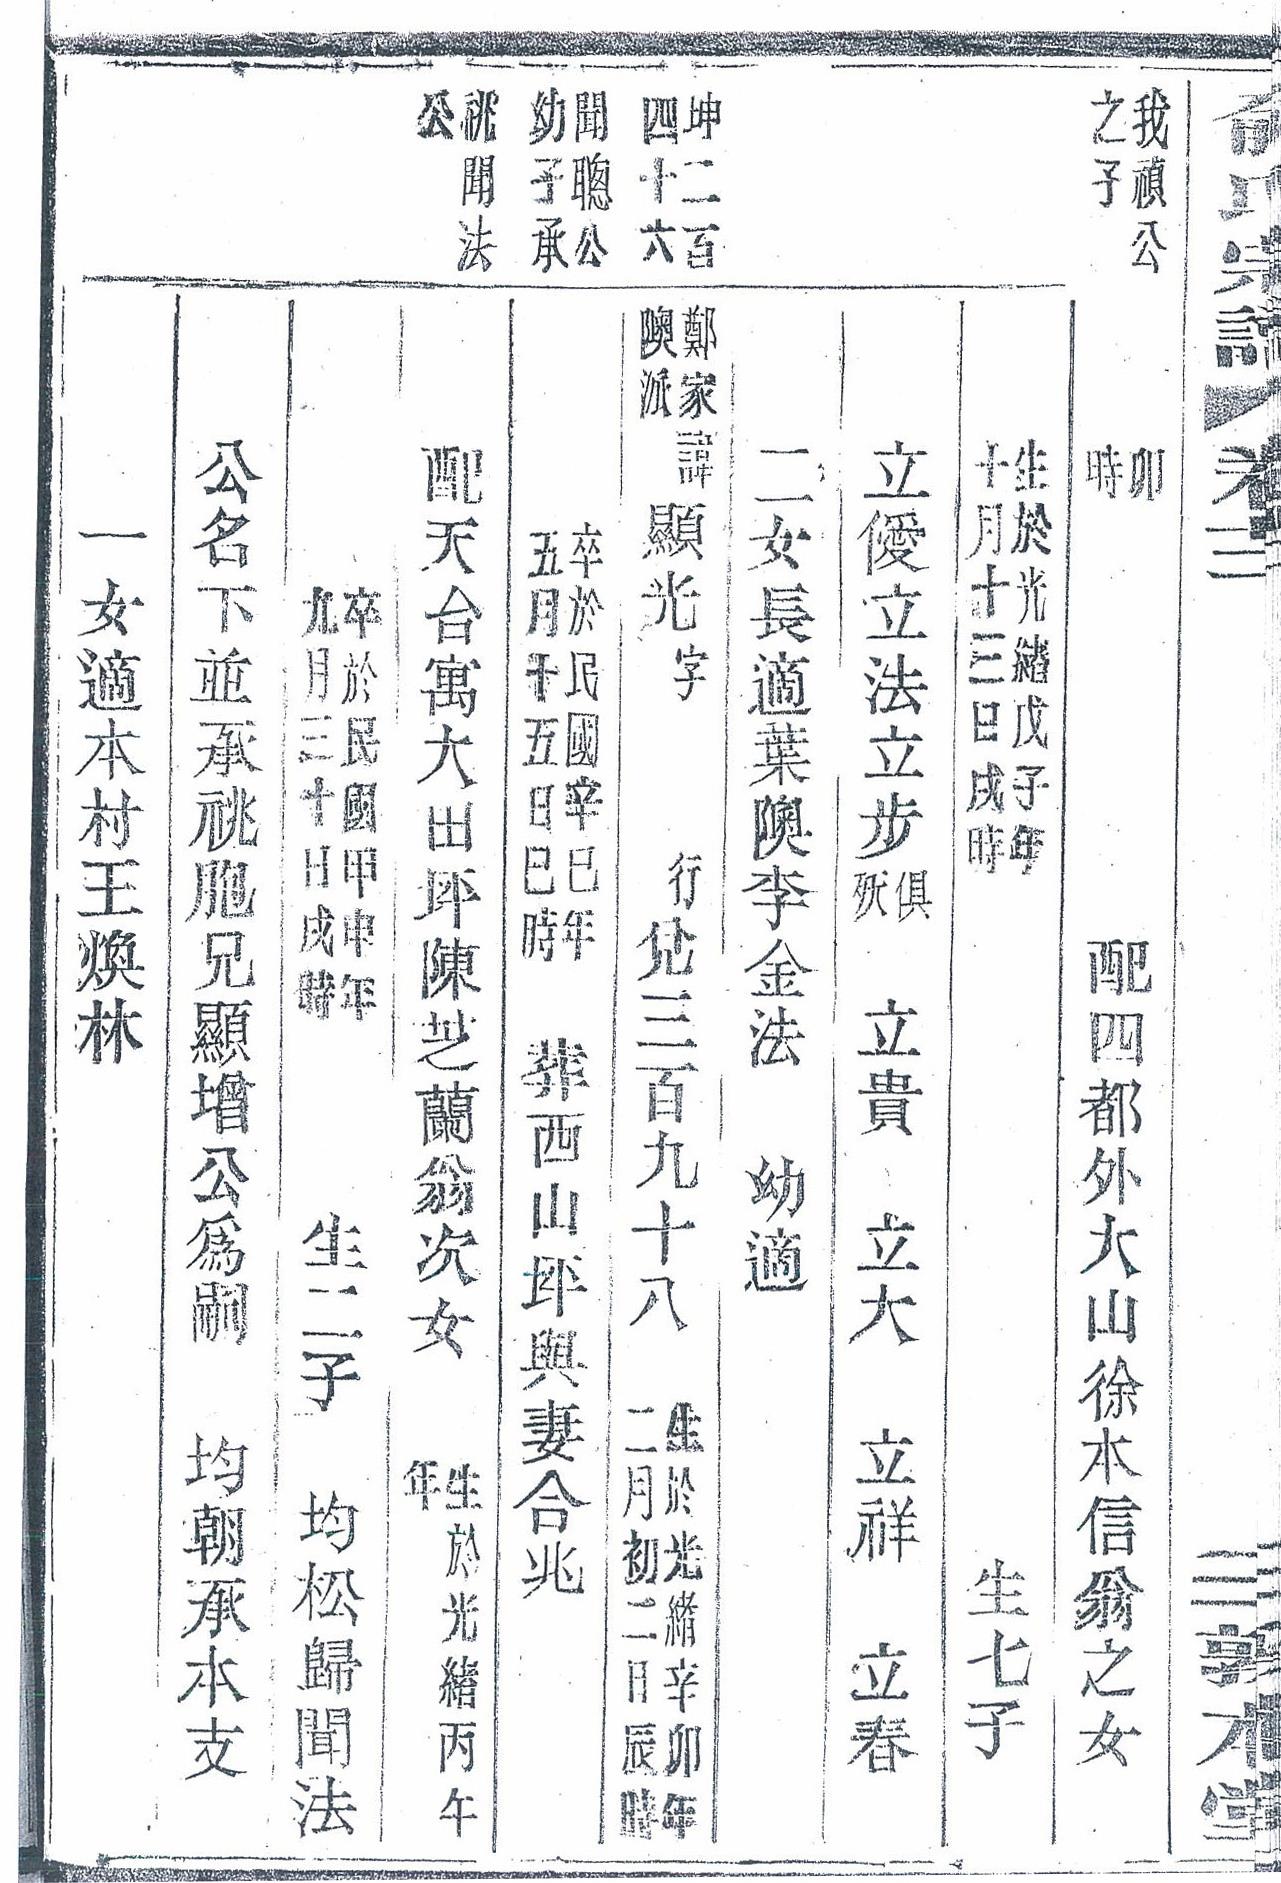 氏宗譜 卷三 三 敦本堂
我頑公
之子
卯
時
配四都外大山徐本信翁之女
生於光緒戊子年
十月十三日戌時
生七子
立優立法立步
俱
殀
立貴 立大 立祥 立春
二女長適葉隩李金法 幼適
坤二百
四十六
鄭家
隩派
諱
顯光
字
行
兌三百九十八
生於光緒辛卯年
二月初二日辰時
聞聰公
幼子承
祧聞法
公
卒於民國辛巳年
五月十五日巳時
葬西山坪與妻合兆
配天台寓大出坪陳芝蘭翁次女
生於光緒丙午
年
卒於民國甲申年
九月三十日戌時
生二子 均松歸聞法
公名下並承祧胞兄顯增公為嗣 均朝承本支
一女適本村王煥林